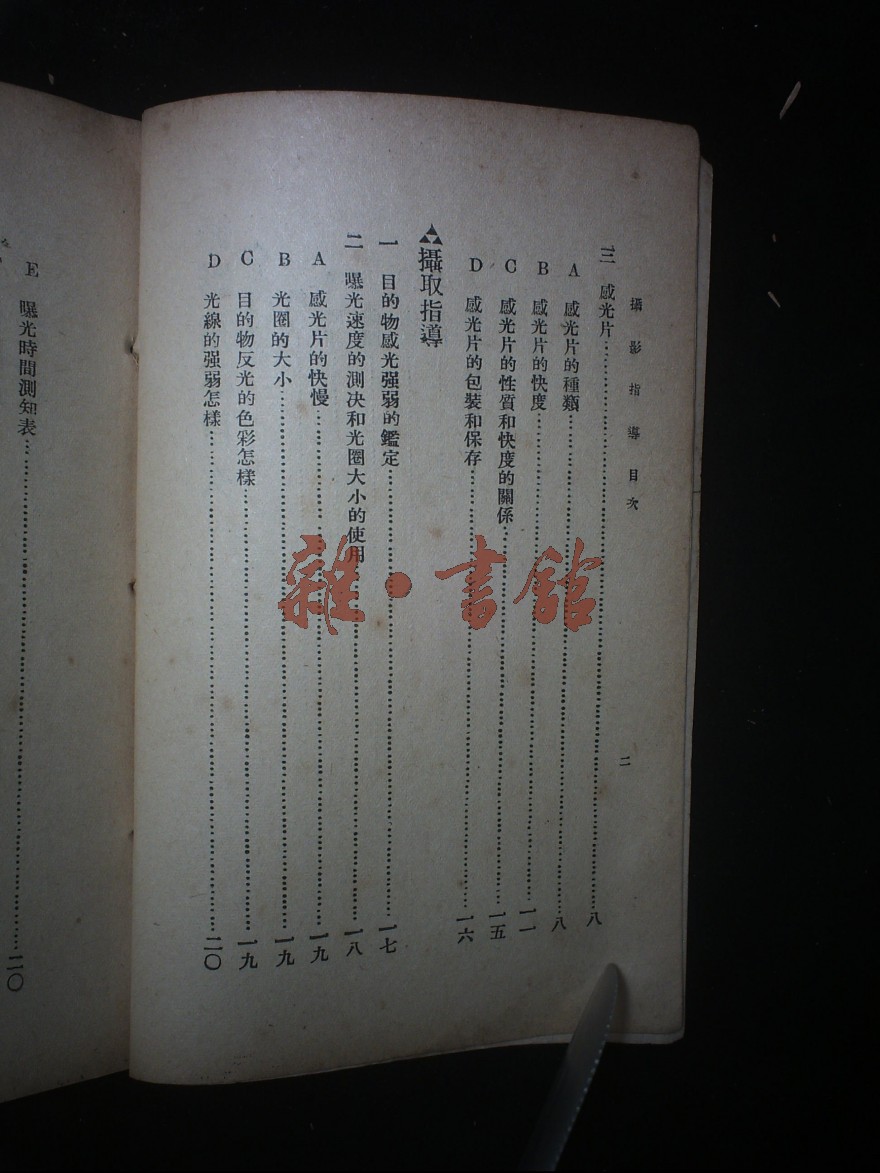 攝影指導目次
二
三 感光片……八
A 感光片的種類……八
B 感光片的快度……一一
C 感光片的性質和快度的關係……一五
D 感光片的包裝和保存……一六
攝取指導
一 目的物感光强弱的鑑定……一七
二 曝光速度的測決和光圈大小的使用……一八
A 感光片的快慢……一九
B 光圈的大小……一九
C 目的物反光的色彩怎樣……一九
D 光線的强弱怎樣……二〇
E 曝光時間測知表……二〇
雜·書館